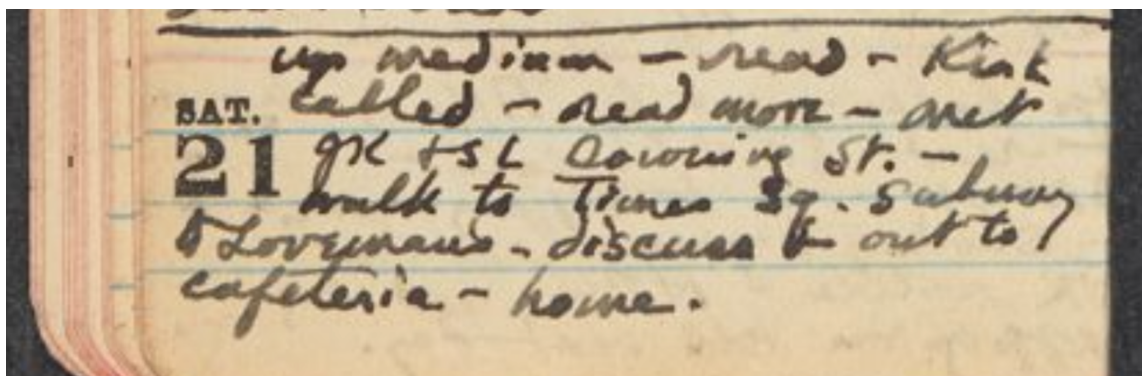 up medium – read – Kirk
SAT. called – read more – met
21 GK & SL Downing St. –
walk to Times Sq. subway
to Loveman's – discuss & out to
cafeteria – home.